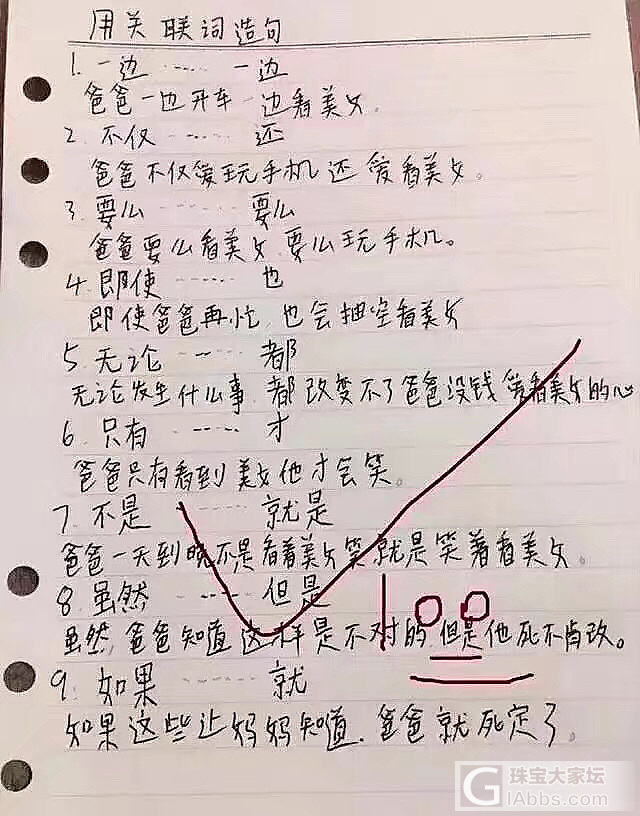 用关联词造句
1. 一边 ······ 一边
爸爸一边开车一边看美女。
2. 不仅 ······ 还
爸爸不仅爱玩手机还爱看美女。
3. 要么 ······ 要么
爸爸要么看美女,要么玩手机。
4. 即使 ······ 也
即使爸爸再忙,也会抽空看美女
5. 无论 ······ 都
无论发生什么事,都改变不了爸爸没钱爱看美女的心
6. 只有 ······ 才
爸爸只有看到美女他才会笑。
7. 不是 ······ 就是
爸爸一天到晚不是看着美女笑就是笑着看美女。
8. 虽然 ······ 但是
虽然,爸爸知道这样是不对的,但是他死不肯改。
100
9. 如果 ······ 就
如果这些让妈妈知道,爸爸就死定了。
珠宝大家坛
GIAbbs.com